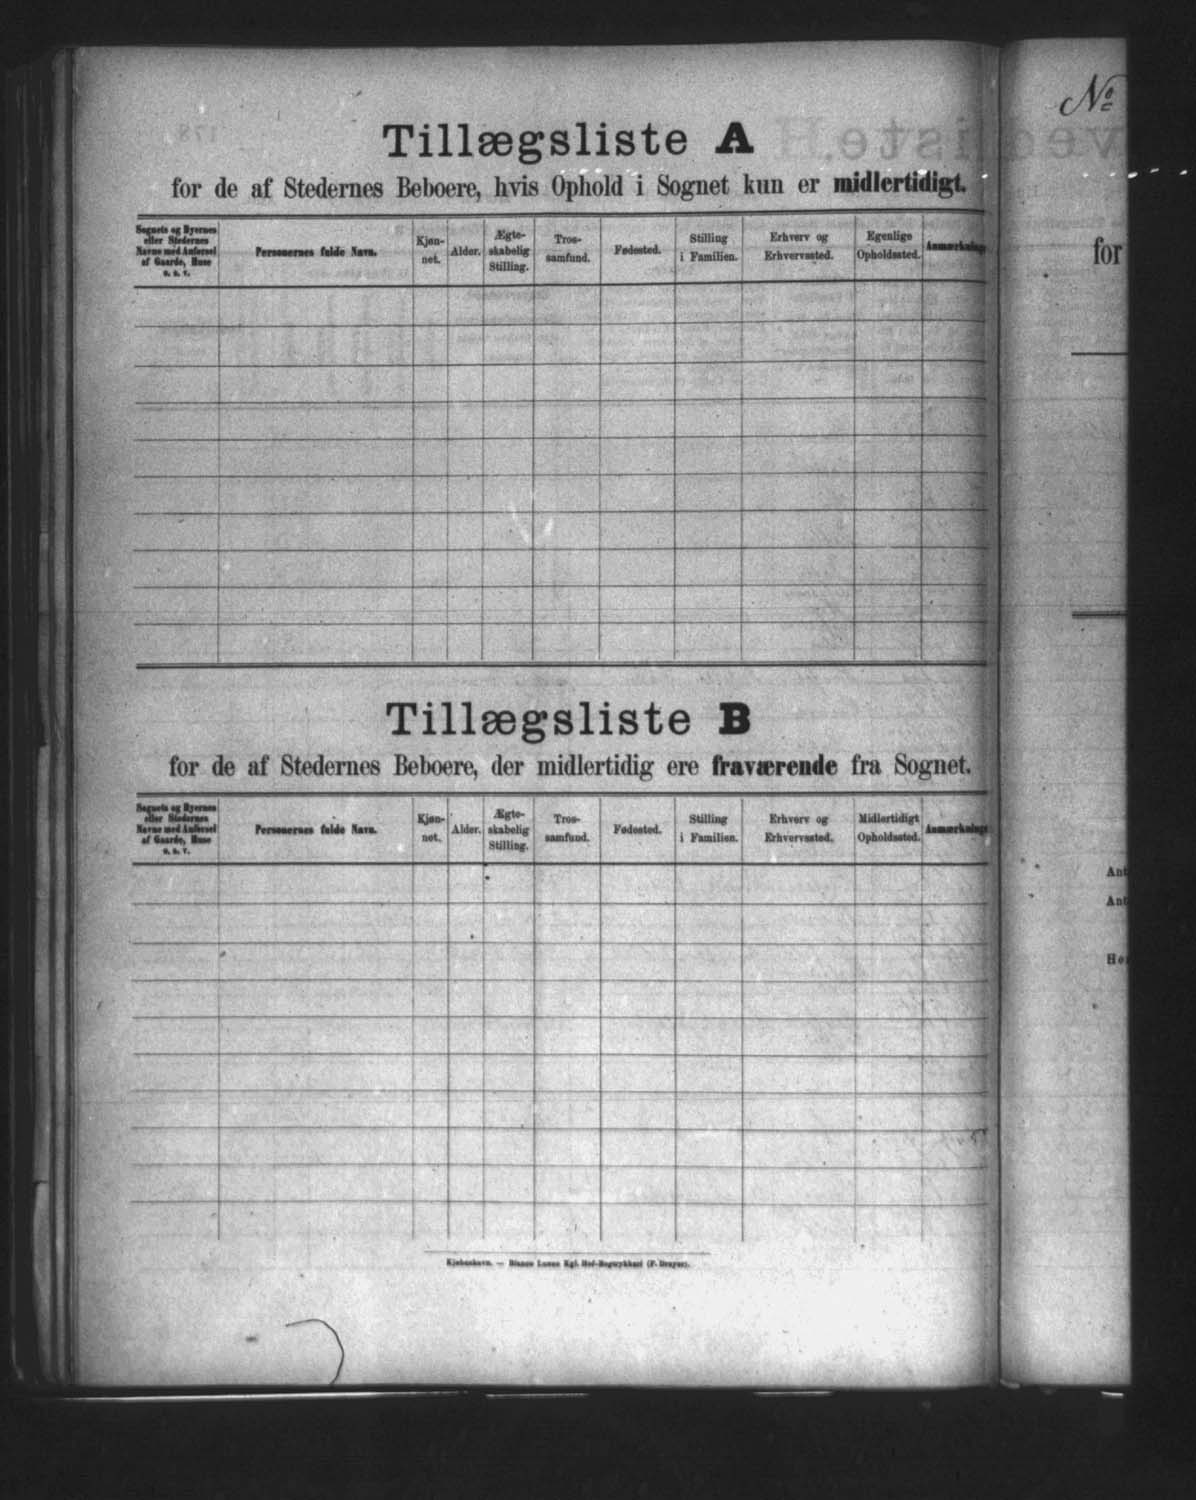 Tillægsliste A
for de af Stedernes Beboere, hvis Ophold i Sognet kun er midlertidigt.
Sognets og Byernes
eller Stedernes
Navne med Anførsel
af Gaarde, Huse
o. s. v.
Personernes fulde Navn.
Kjøn-
net.
Alder.
Ægte-
skabelig
Stilling.
Tros-
samfund.
Fødested.
Stilling
i Familien.
Erhverv og
Erhvervssted.
Egenlige
Opholdssted.
Anmærkninger
Tillægsliste B
for de af Stedernes Beboere, der midlertidig ere fraværende fra Sognet.
Sognets og Byernes
eller Stedernes
Navne med Anførsel
af Gaarde, Huse
o. s. v.
Personernes fulde Navn.
Kjøn-
net.
Alder.
Ægte-
skabelig
Stilling.
Tros-
samfund.
Fødested.
Stilling
i Familien.
Erhverv og
Erhvervssted.
Midlertidigt
Opholdssted.
Anmærkninger
Kjøbenhavn. — Bianco Lunos Kgl. Hof-Bogtrykkeri (F. Dreyer).
No
for
Ant
Ant
He